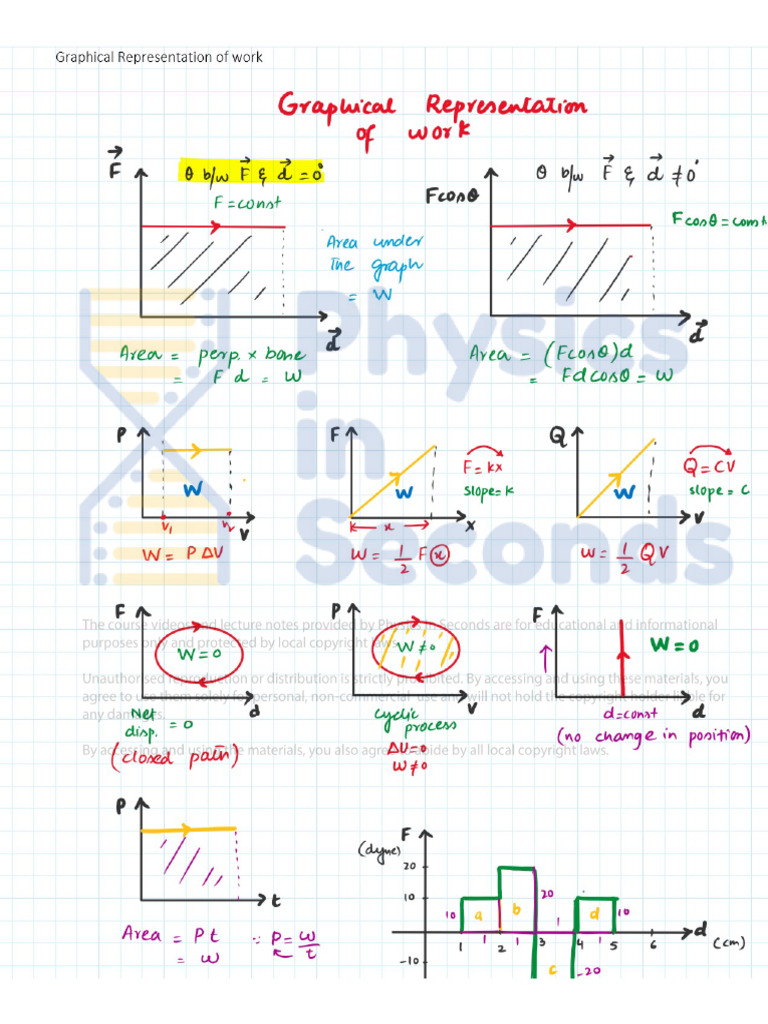 Graphical Representation of work
Graphical Representation
of work
F θ b/w F & d = 0°
F = const
Area under
The graph
= W
d
Area = perp. × base
= F d = W
Fcosθ θ b/w F & d ≠ 0°
Fcosθ = const
d
Area = (Fcosθ)d
= Fdcosθ = W
P
W
V₁ V₂ V
W = P ΔV
F
W
F = kx
slope = k
x x
W = 1/2 F x
Q
W
Q = CV
slope = C
V
W = 1/2 QV
F
W = 0
d
Net
disp. = 0
(closed path)
P
W ≠ 0
V
cyclic
process
ΔU = 0
W ≠ 0
F
W = 0
d = const d
(no change in position)
Physics
in
Seconds
The course videos and lecture notes provided by Physics in Seconds are for educational and informational
purposes only and protected by local copyright laws.
Unauthorised reproduction or distribution is strictly prohibited. By accessing and using these materials, you
agree to use them solely for personal, non-commercial use and will not hold the copyright holder liable for
any damages.
By accessing and using the materials, you also agree to abide by all local copyright laws.
P
t
Area = P t ∵ P = W/t
= W
F
(dyne)
20
10
-10
10 a b 20 1 d 10
1 1 1
1 2 3 4 5 6 d (cm)
c -20